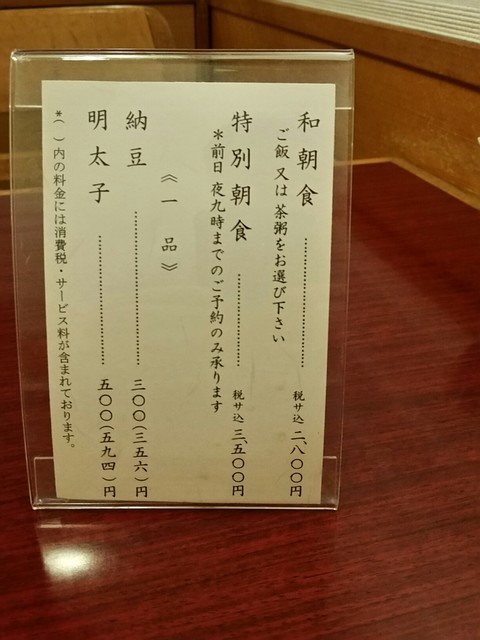 和朝食 税サ込 二、八〇〇円
ご飯又は茶粥をお選び下さい
特別朝食 税サ込 三、五〇〇円
＊前日夜九時までのご予約のみ承ります
《一品》
納豆 三〇〇(三五六)円
明太子 五〇〇(五九四)円
＊( )内の料金には消費税・サービス料が含まれております。